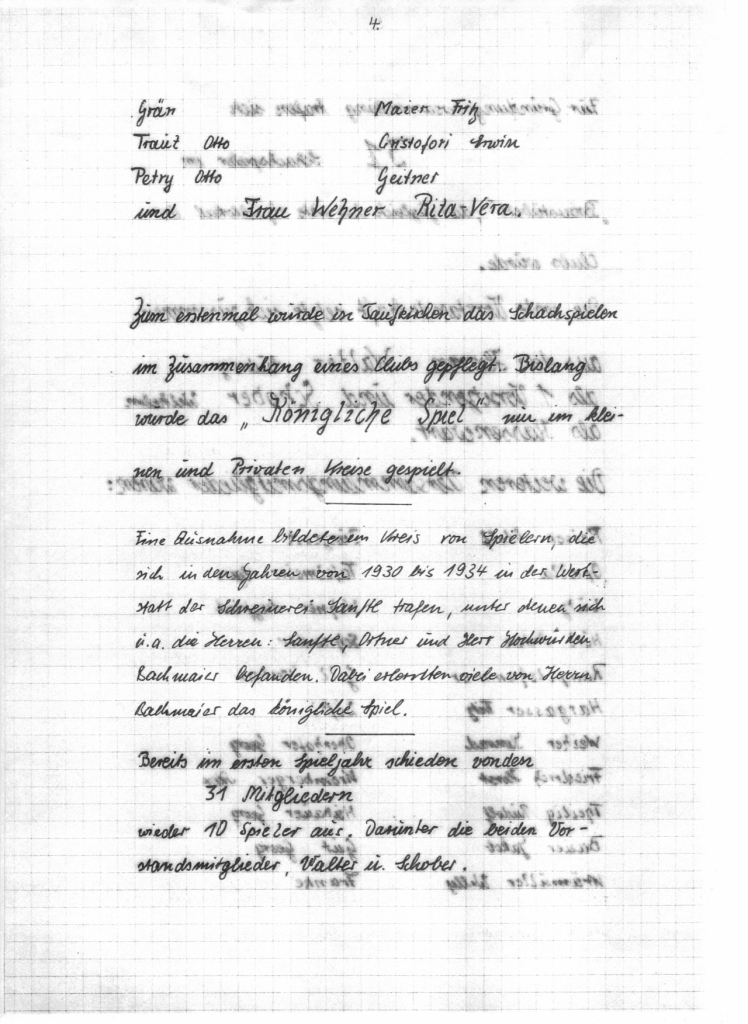 4.
Grän Maier Fritz
Trautz Otto Cristofori Erwin
Petry Otto Geitner
und Frau Wehner Rita-Vera.
Zum erstenmal wurde in Taufkirchen das Schachspielen
im Zusammenhang eines Clubs gepflegt. Bislang
wurde das „Königliche Spiel" nur im klei-
nen und Privaten Kreise gespielt.
Eine Ausnahme bildete ein Kreis von Spielern, die
sich in den Jahren von 1930 bis 1934 in der Werk-
statt der Schreinerei Sanftl trafen, unter denen sich
u.a. die Herren: Sanftl, Ortner und Herr Hochwürden
Bachmaier befanden. Dabei erlernten viele von Herrn
Bachmaier das königliche Spiel.
Bereits im ersten Spieljahr schieden von den
31 Mitgliedern
wieder 10 Spieler aus. Darunter die beiden Vor-
standsmitglieder, Walter u. Schober.